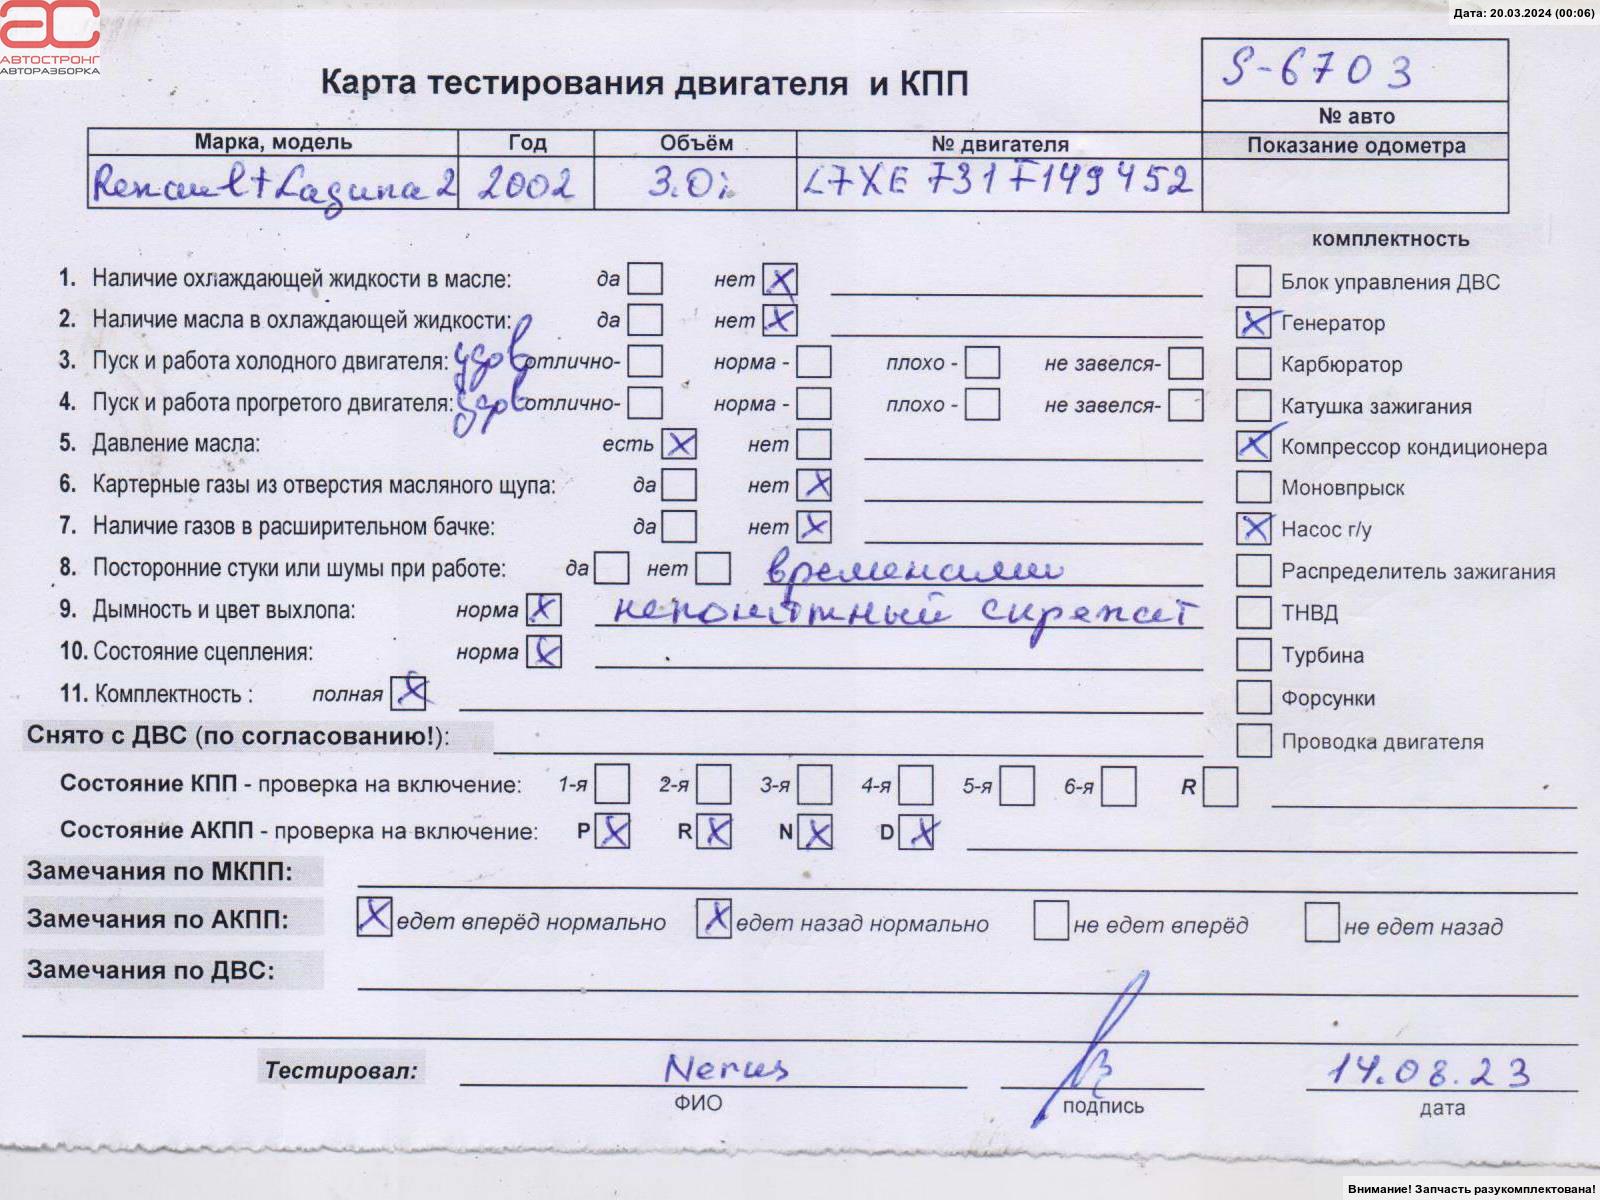 АС
АВТОСТРОНГ
АВТОРАЗБОРКА
Дата: 20.03.2024 (00:06)
S-6703
Карта тестирования двигателя и КПП
№ авто
Марка, модель Год Объём № двигателя Показание одометра
Renault Laguna 2 2002 3.0i L7XE 731 F149452
комплектность
1. Наличие охлаждающей жидкости в масле: да нет X Блок управления ДВС
2. Наличие масла в охлаждающей жидкости: да нет X X Генератор
3. Пуск и работа холодного двигателя: удов отлично- норма - плохо - не завелся- Карбюратор
4. Пуск и работа прогретого двигателя: удов отлично- норма - плохо - не завелся- Катушка зажигания
5. Давление масла: есть X нет X Компрессор кондиционера
6. Картерные газы из отверстия масляного щупа: да нет X Моновпрыск
7. Наличие газов в расширительном бачке: да нет X X Насос г/у
8. Посторонние стуки или шумы при работе: да нет временами Распределитель зажигания
9. Дымность и цвет выхлопа: норма X непонятный скрежет ТНВД
10. Состояние сцепления: норма X Турбина
11. Комплектность : полная X Форсунки
Снято с ДВС (по согласованию!): Проводка двигателя
Состояние КПП - проверка на включение: 1-я 2-я 3-я 4-я 5-я 6-я R
Состояние АКПП - проверка на включение: P X R X N X D X
Замечания по МКПП:
Замечания по АКПП: X едет вперёд нормально X едет назад нормально не едет вперёд не едет назад
Замечания по ДВС:
Тестировал: 14.08.23
ФИО подпись дата
Внимание! Запчасть разукомплектована!